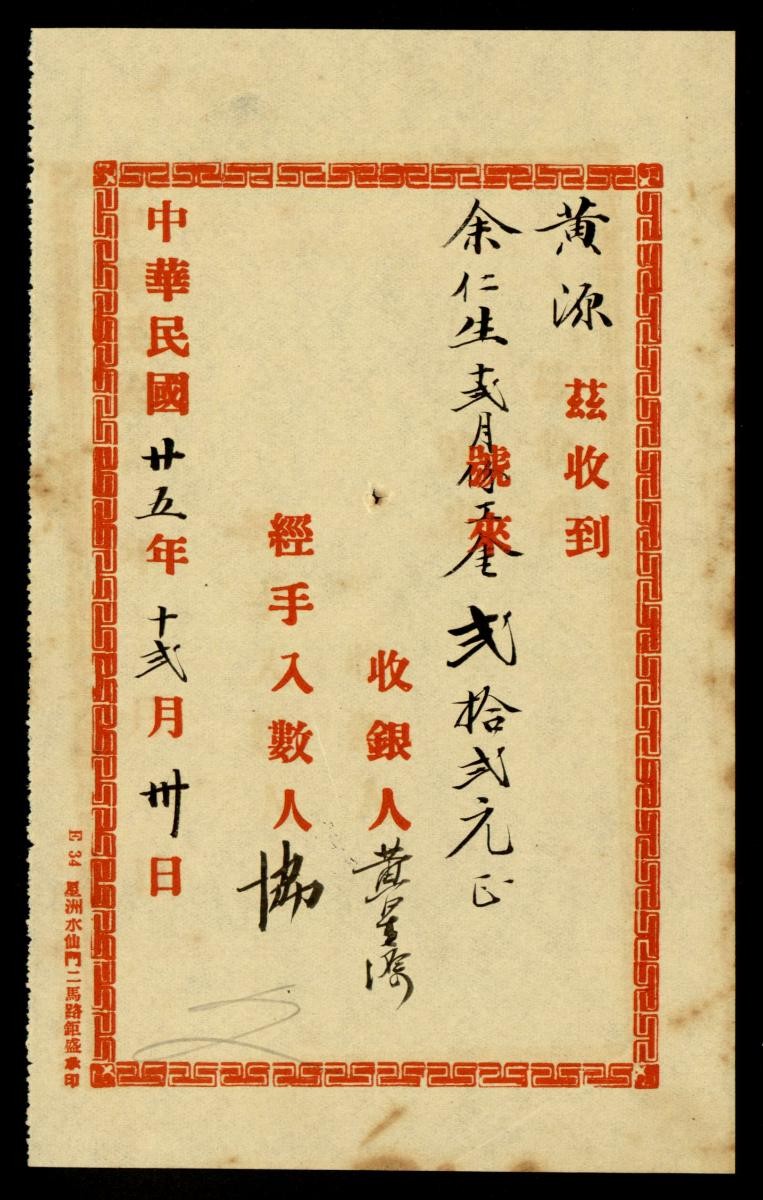 黄源 茲收到
余仁生十弍月份工金弍拾弍元正
號來
收銀人 黄星
經手入數人 協
中華民國廿五年十弍月卅日
E 34 星洲水仙門二馬路鉅盛承印